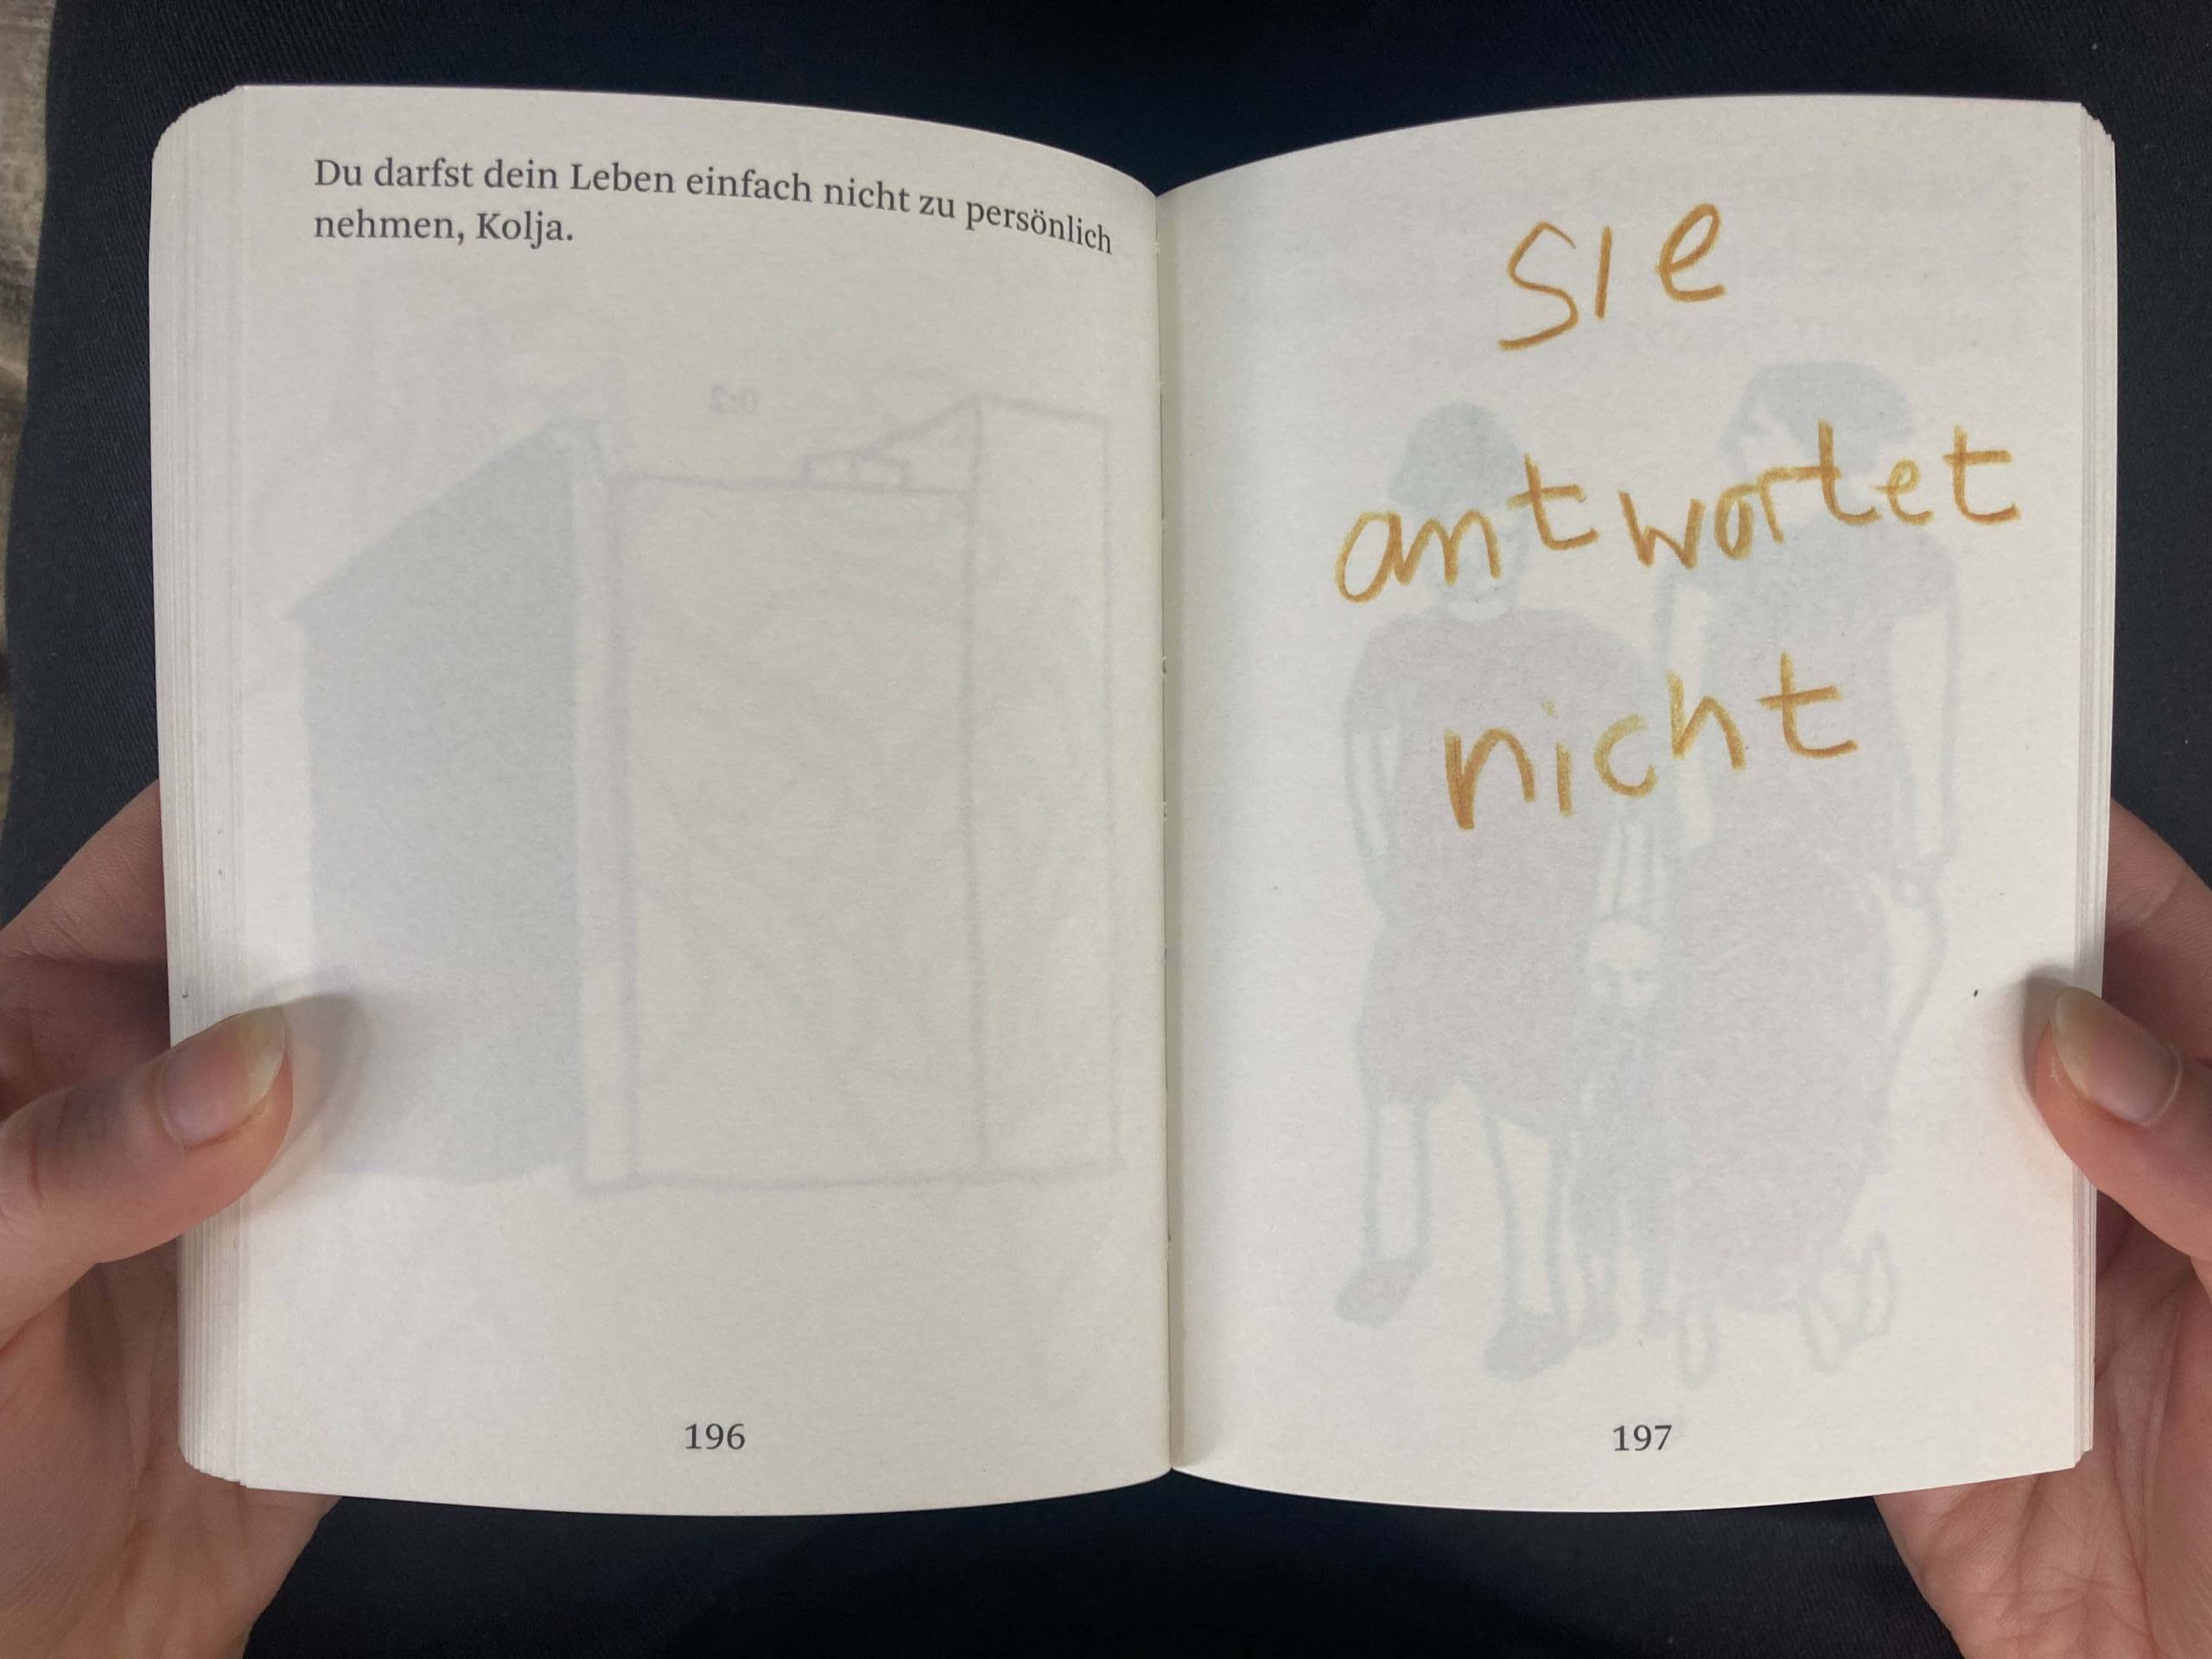 Du darfst dein Leben einfach nicht zu persönlich
nehmen, Kolja.
196
sie
antwortet
nicht
197